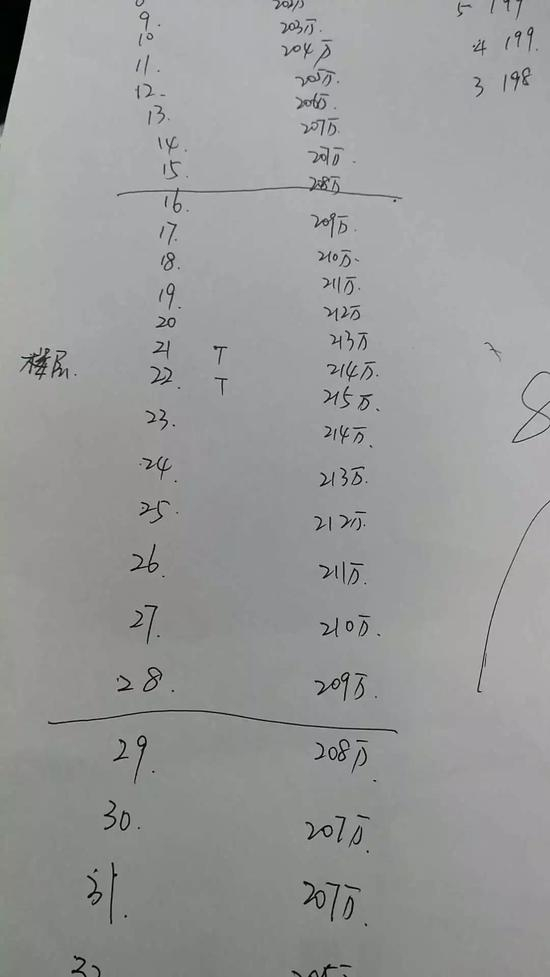 8 202万 5 197
9. 203万.
10 204万 4 199.
11. 205万. 3 198
12. 206万.
13. 207万.
14. 207万.
15. 208万
16. 209万.
17. 210万.
18. 211万.
19. 212万
20 213万
楼层. 21 T 214万.
22. T 215万.
23. 214万.
24. 213万.
25. 212万.
26. 211万.
27. 210万.
28. 209万.
29. 208万.
30. 207万.
31. 207万.
32 205万